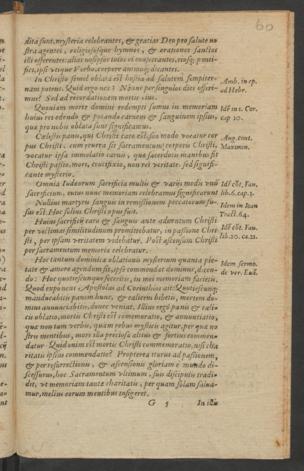 60
dita sunt, mysteria celebrantes, & gratias Deo pro salute no
stra agentes, religiososque hymnos, & orationes sanctas
illi offerentes: altius nosipsos totos ei consecrantes, eiusq; ponti-
fici, ipsi vtique Verbo, corpore animoq; dicantes.
In Christo semel oblata est hostia ad salutem sempiter-
nam potens. Quid ergo nos? Nonne per singulos dies offeri-
mus? Sed ad recordationem mortis eius.
Quoniam morte domini redempti sumus in memoriam
huius rei edendo & potando carnem & sanguinem ipsius,
quæ pro nobis oblata sunt significamus.
Cælestis panis, qui Christi caro est, suo modo vocatur cor
pus Christi, cum reuera sit sacramentum corporis Christi,
vocatur ipsa immolatio carnis, quæ sacerdotis manibus fit
Christi passio, mors, crucifixio, non rei veritate, sed signifi-
cante mysterio.
Omnia Iudæorum sacrificia multis & varijs modis vnū
sacrificium, cuius nunc memoriam celebramus significarunt
Nullius martyris sanguis in remissionem peccatorum fu-
sus est: Hoc solus Christus pro
Huius sacrificij caro & sanguis ante aduentum Christi
per victimas similitudinum promittebatur, in passione Chri
sti, per ipsam veritatem reddebatur, Post ascensum Christi
per sacramentum memoriæ celebratur.
Hoc tantum dominicæ oblationis mysterium quanta pie-
tate & amore agendum sit, ipse commendat dominus, dicen-
do: Hæc quotiescunque feceritis, in mei memoriam facietis.
Quod exponens Apostolus ad Corinthios ait: Quotiescunq;
manducabitis panem hunc, & calicem bibetis, mortem do-
mini annunciabitis, donec veniat. Illius ergo panis & cali-
cis oblatio, mortis Christi est commemoratio, & annunciatio,
quæ non tam verbis, quàm rebus mysticis agitur, per quæ no
stris mentibus, mors illa preciosa altius & fortius commen-
datur Quid enim est mortis Christi commemoratio, nisi cha
ritatis ipsius commendatio? Propterea iturus ad passionem,
& per resurrectionis, & ascensionis gloriam è mundo di-
scessurus, hoc Sacramentum vltimum, suis discipulis tradi-
dit, vt memoriam tantæ charitatis, per quam solam salua-
mur, melius eorum mentibus infigeret.
G 5
In isto
Amb. in ep.
ad Hebr.
Idē in 1. Cor.
cap 10.
Aug. cont.
Maximin.
Idē cōt. Fau.
lib. 6. cap. 5.
Idem in Ioan
Tract. 84.
Idē cōt. Fau.
lib. 20. ca. 21.
Idem sermo.
de ver. Euā.